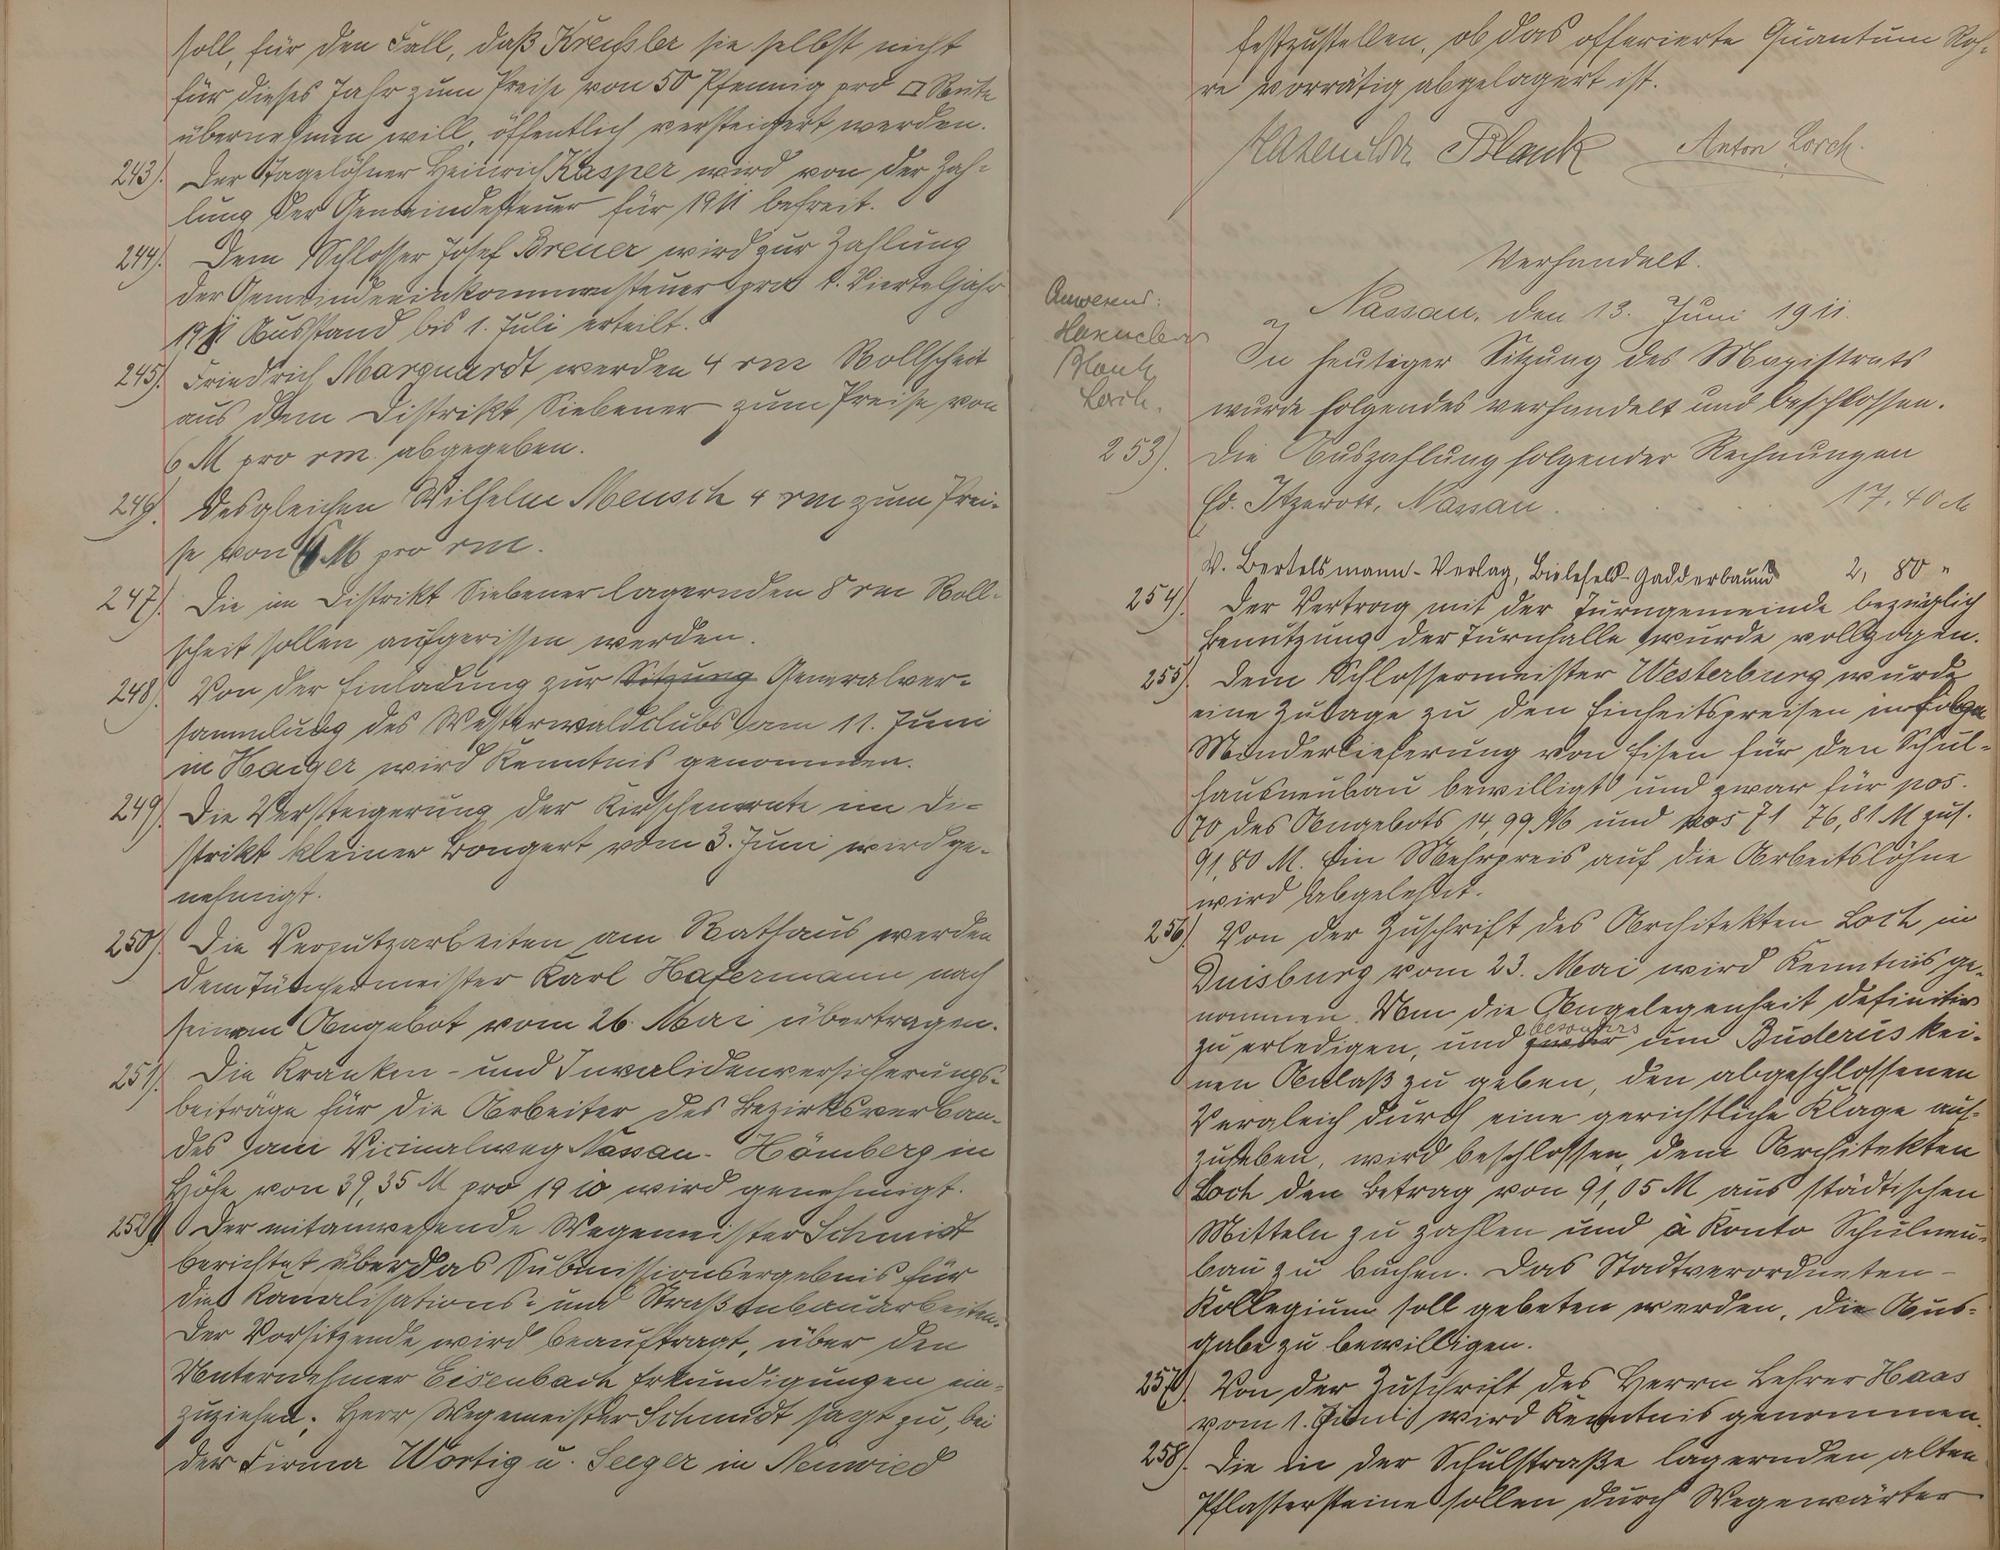 soll, für den Fall, daß Kreußler sie selbst nicht
für dieses Jahr zum Preise von 50 Pfennig pro □ Rute
übernehmen will, öffentlich versteigert werden.
243). Der Tagelöhner Heinrich Kasper wird von der Zah-
lung der Gemeindesteuer für 1911 befreit.
244). Dem Schlosser Josef Breuer wird zur Zahlung
der Gemeindeeinkommensteuer pro 1. Vierteljahr
1911 Ausstand bis 1. Juli erteilt.
245). Friedrich Marquardt werden 4 rm Rollscheit
aus dem Distrikt Siebener zum Preise von
6 M pro rm abgegeben.
246). Desgleichen Wilhelm Mensch 4 rm zum Prei-
se von M pro rm.
247). Die im Distrikt Siebener lagernden 8 rm Roll-
scheit sollen aufgerissen werden.
248). Von der Einladung zur Sitzung Generalver-
sammlung des Westerwaldclubs am 11. Juni
in Haiger wird Kenntnis genommen.
249). Die Versteigerung der Kirschenernte im Di-
strikt kleiner Bongert vom 3. Juni wird ge-
nehmigt.
250). Die Verputzarbeiten am Rathaus werden
dem Tünchermeister Karl Hafermann nach
seinem Angebot vom 26. Mai übertragen.
251). Die Kranken- und Invalidenversicherungs-
beiträge für die Arbeiter des Bezirksverban-
des am Vicinalweg Nassau-Hömberg in
Höhe von 39,35 M pro 1910 wird genehmigt.
252). Der mitanwesende Wegemeister Schmidt
berichtet über das Submissionsergebnis für
die Kanalisations- und Straßenbauarbeiten.
Der Vorsitzende wird beauftragt, über den
Unternehmer Eisenbach Erkundigungen ein-
zuziehen; Herr Wegemeister Schmidt sagt zu, bei
der Firma Wortig u. Seeger in Neuwied
festzustellen, ob das offerierte Quantum Roh-
re vorrätig abgelagert ist.
Hasenclever Blank Anton Lorch.
Verhandelt.
Nassau, den 13. Juni 1911.
Anwesend:
Hasenclever
Blank
Lorch.
In heutiger Sitzung des Magistrats
wurde folgendes verhandelt und beschlossen.
253). Die Auszahlung folgender Rechnungen
Ed. Itzerott, Nassau . . . . 17,40 M
W. Bertelsmann-Verlag, Bielefeld-Gadderbaum 2,80 "
254). Der Vertrag mit der Turngemeinde bezüglich
Benutzung der Turnhalle wurde vollzogen.
255). Dem Schlossermeister Westerburg wurde
eine Zulage zu den Einheitspreisen infolge
Minderlieferung von Eisen für den Schul-
hausneubau bewilligt und zwar für pos.
70 des Angebots 14,99 M und pos 71 76,81 M zus.
91,80 M. Ein Mehrpreis auf die Arbeitslöhne
wird abgelehnt.
256). Von der Zuschrift des Architekten Loch in
Duisburg vom 23. Mai wird Kenntnis ge-
nommen. Um die Angelegenheit definitiv
zu erledigen, und besonders um Buderus kei-
nen Anlaß zu geben, den abgeschlossenen
Vergleich durch eine gerichtliche Klage auf-
zuheben, wird beschlossen, dem Architekten
Loch den Betrag von 91,05 M aus städtischen
Mitteln zu zahlen und à Konto Schulneu-
bau zu buchen. Das Stadtverordneten-
Kollegium soll gebeten werden, die Aus-
gabe zu bewilligen.
257). Von der Zuschrift des Herrn Lehrer Haas
vom 1. Juni wird Kenntnis genommen.
258). Die in der Schulstraße lagernden alten
Pflastersteine sollen durch Wegewärter